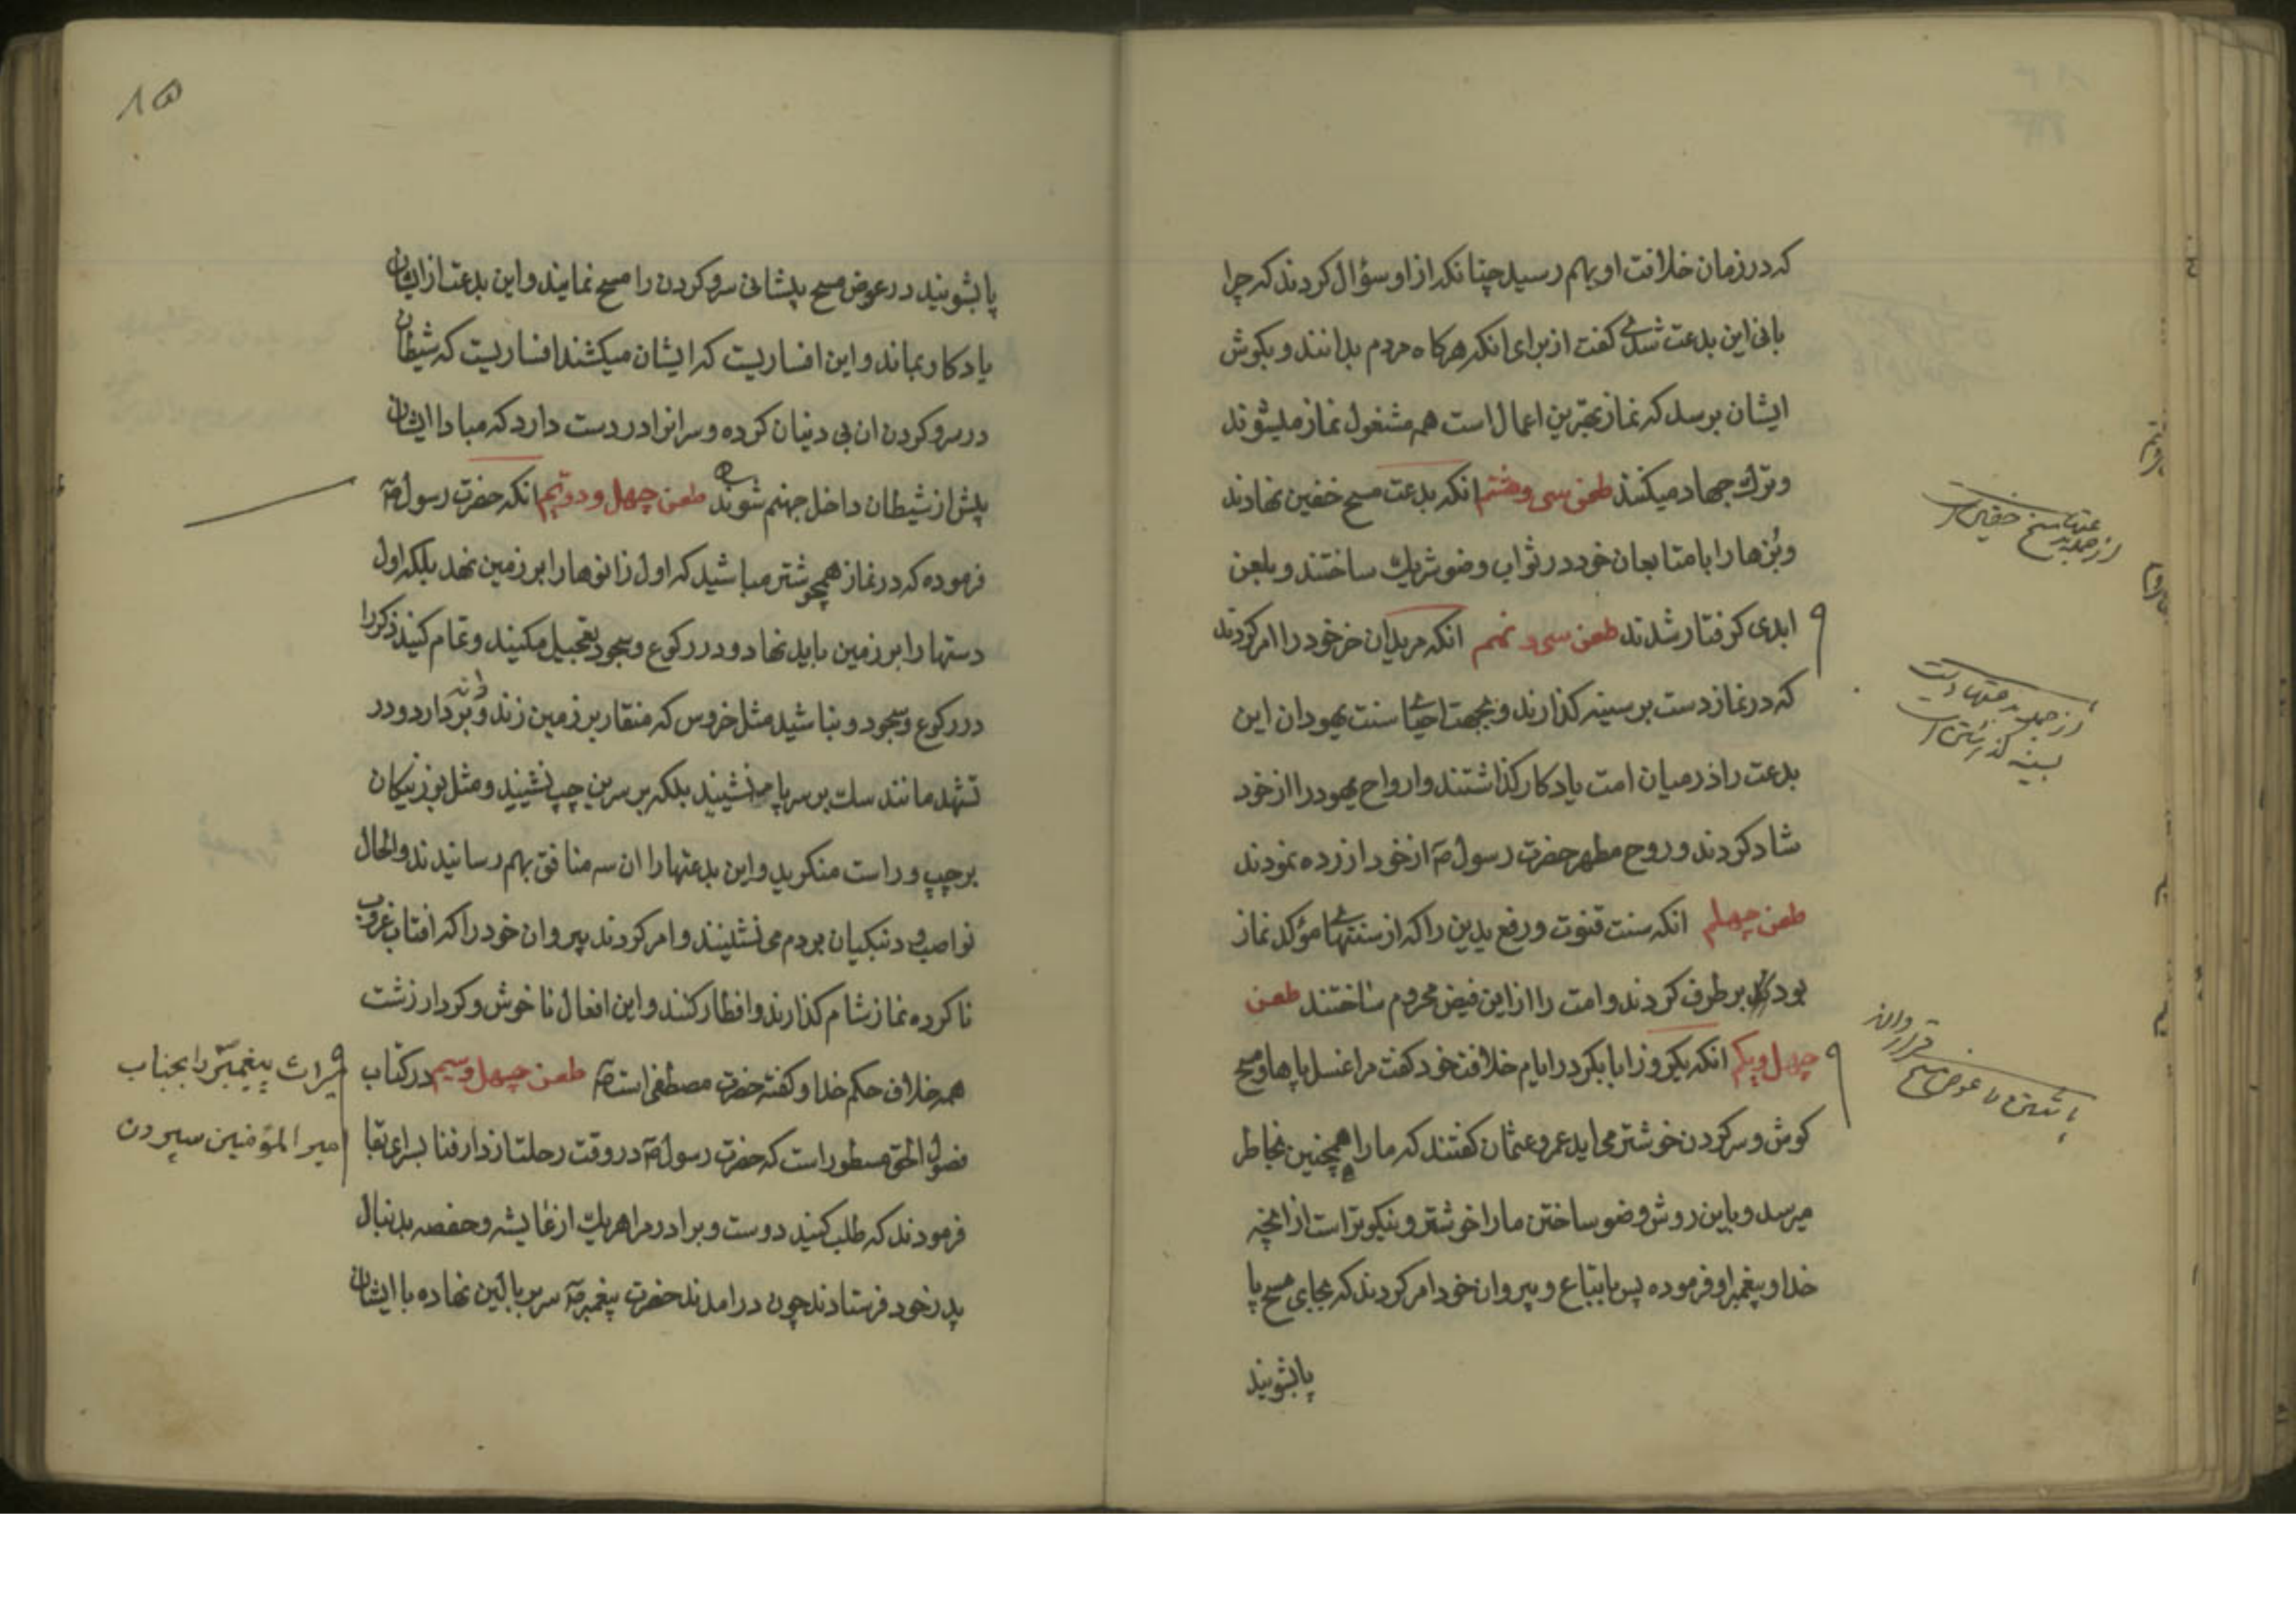 که در زمان خلافت او بهم رسید چنانکه از او سؤال کردند که چرا
بانی این بدعت شدی گفت از برای انکه هرکاه مردم بدانند و بکوش
ایشان برسد که نماز بهترین اعمال است همه مشغول نماز میشوند
و ترک جهاد میکنند طعن سی و هشتم انکه بدعت مسح خفین نهادند
و بُزها را با متابعان خود در ثواب وضو شریک ساختند و بلعن
ابدی کرفتار شدند طعن سی و نهم انکه مریدان خر خود را امر کردند
که در نماز دست بر سینه کذارند و بجهت احیای سنت یهودان این
بدعت را در میان امت یادکار کذاشتند و ارواح یهود را از خود
شاد کردند و روح مطهر حضرت رسول ص از خود ازرده نمودند
طعن چهلم انکه سنت قنوت و رفع یدین را که از سنتهای مؤکد نماز
بود بر طرف کردند و امت را از این فیض محروم ساختند طعن
چهل و یکم انکه یکروز ابابکر در ایام خلافت خود کفت مرا غسل پاها و مسح
کوش و سر کردن خوشتر می اید عمر و عثمان کفتند که ما را همچنین بخاطر
میرسد و باین روش وضو ساختن ما را خوشتر و نیکوتر است از انچه
خدا و پیغمبر او فرموده پس باتباع و پیروان خود امر کردند که بجای مسح پا
پا بشویند
از جمله بدعتها مسح خفین است
از جمله بدعتها دست
بسینه کذاشتن است
قرار دادن
پا شستن را عوض مسح
۸۵
پا بشویند در عوض مسح پیشانی سر و کردن را مسح نمایند و این بدعت از ایشان
یادکار بماند و این افساریست که ایشان میکشند افساریست که شیطان
در سر و کردن ان بی دینان کرده و سر انرا در دست دارد که مبادا ایشان
پیش از شیطان داخل جهنم شوند طعن چهل و دویم انکه حضرت رسول ص
فرموده که در نماز همچو شتر مباشید که اول زانوها را بر زمین نهد بلکه اول
دستها را بر زمین باید نهاد و در رکوع و سجود تعجیل مکنید و تمام کنید ذکر را
در رکوع و سجود و نباشید مثل خروس که منقار بر زمین زند و دانه بر دارد و در
تشهد مانند سک بر سر پا منشینید بلکه بر سرین چپ نشینید و مثل بوزینکان
بر چپ و راست منکرید و این بدعتها را ان سه منافق بهم رسانیدند و الحال
نواصب و دنبکیان بر دم می نشینند و امر کردند پیروان خود را که افتاب غروب
نا کرده نماز شام کذارند و افطار کنند و این افعال نا خوش و کردار زشت
همه خلاف حکم خدا و کفته حضرت مصطفی است ص طعن چهل و سیم در کتاب
فصول الحق مسطور است که حضرت رسول ص در وقت رحلت از دار فنا بسرای بقا
فرمودند که طلب کنید دوست و برادر مرا هر یک از عایشه و حفصه بدنبال
پدر خود فرستادند چون در امدند حضرت پیغمبر ص سر ببالین نهاده با ایشان
میراث پیغمبر را بجناب
امیر المؤمنین سپردن